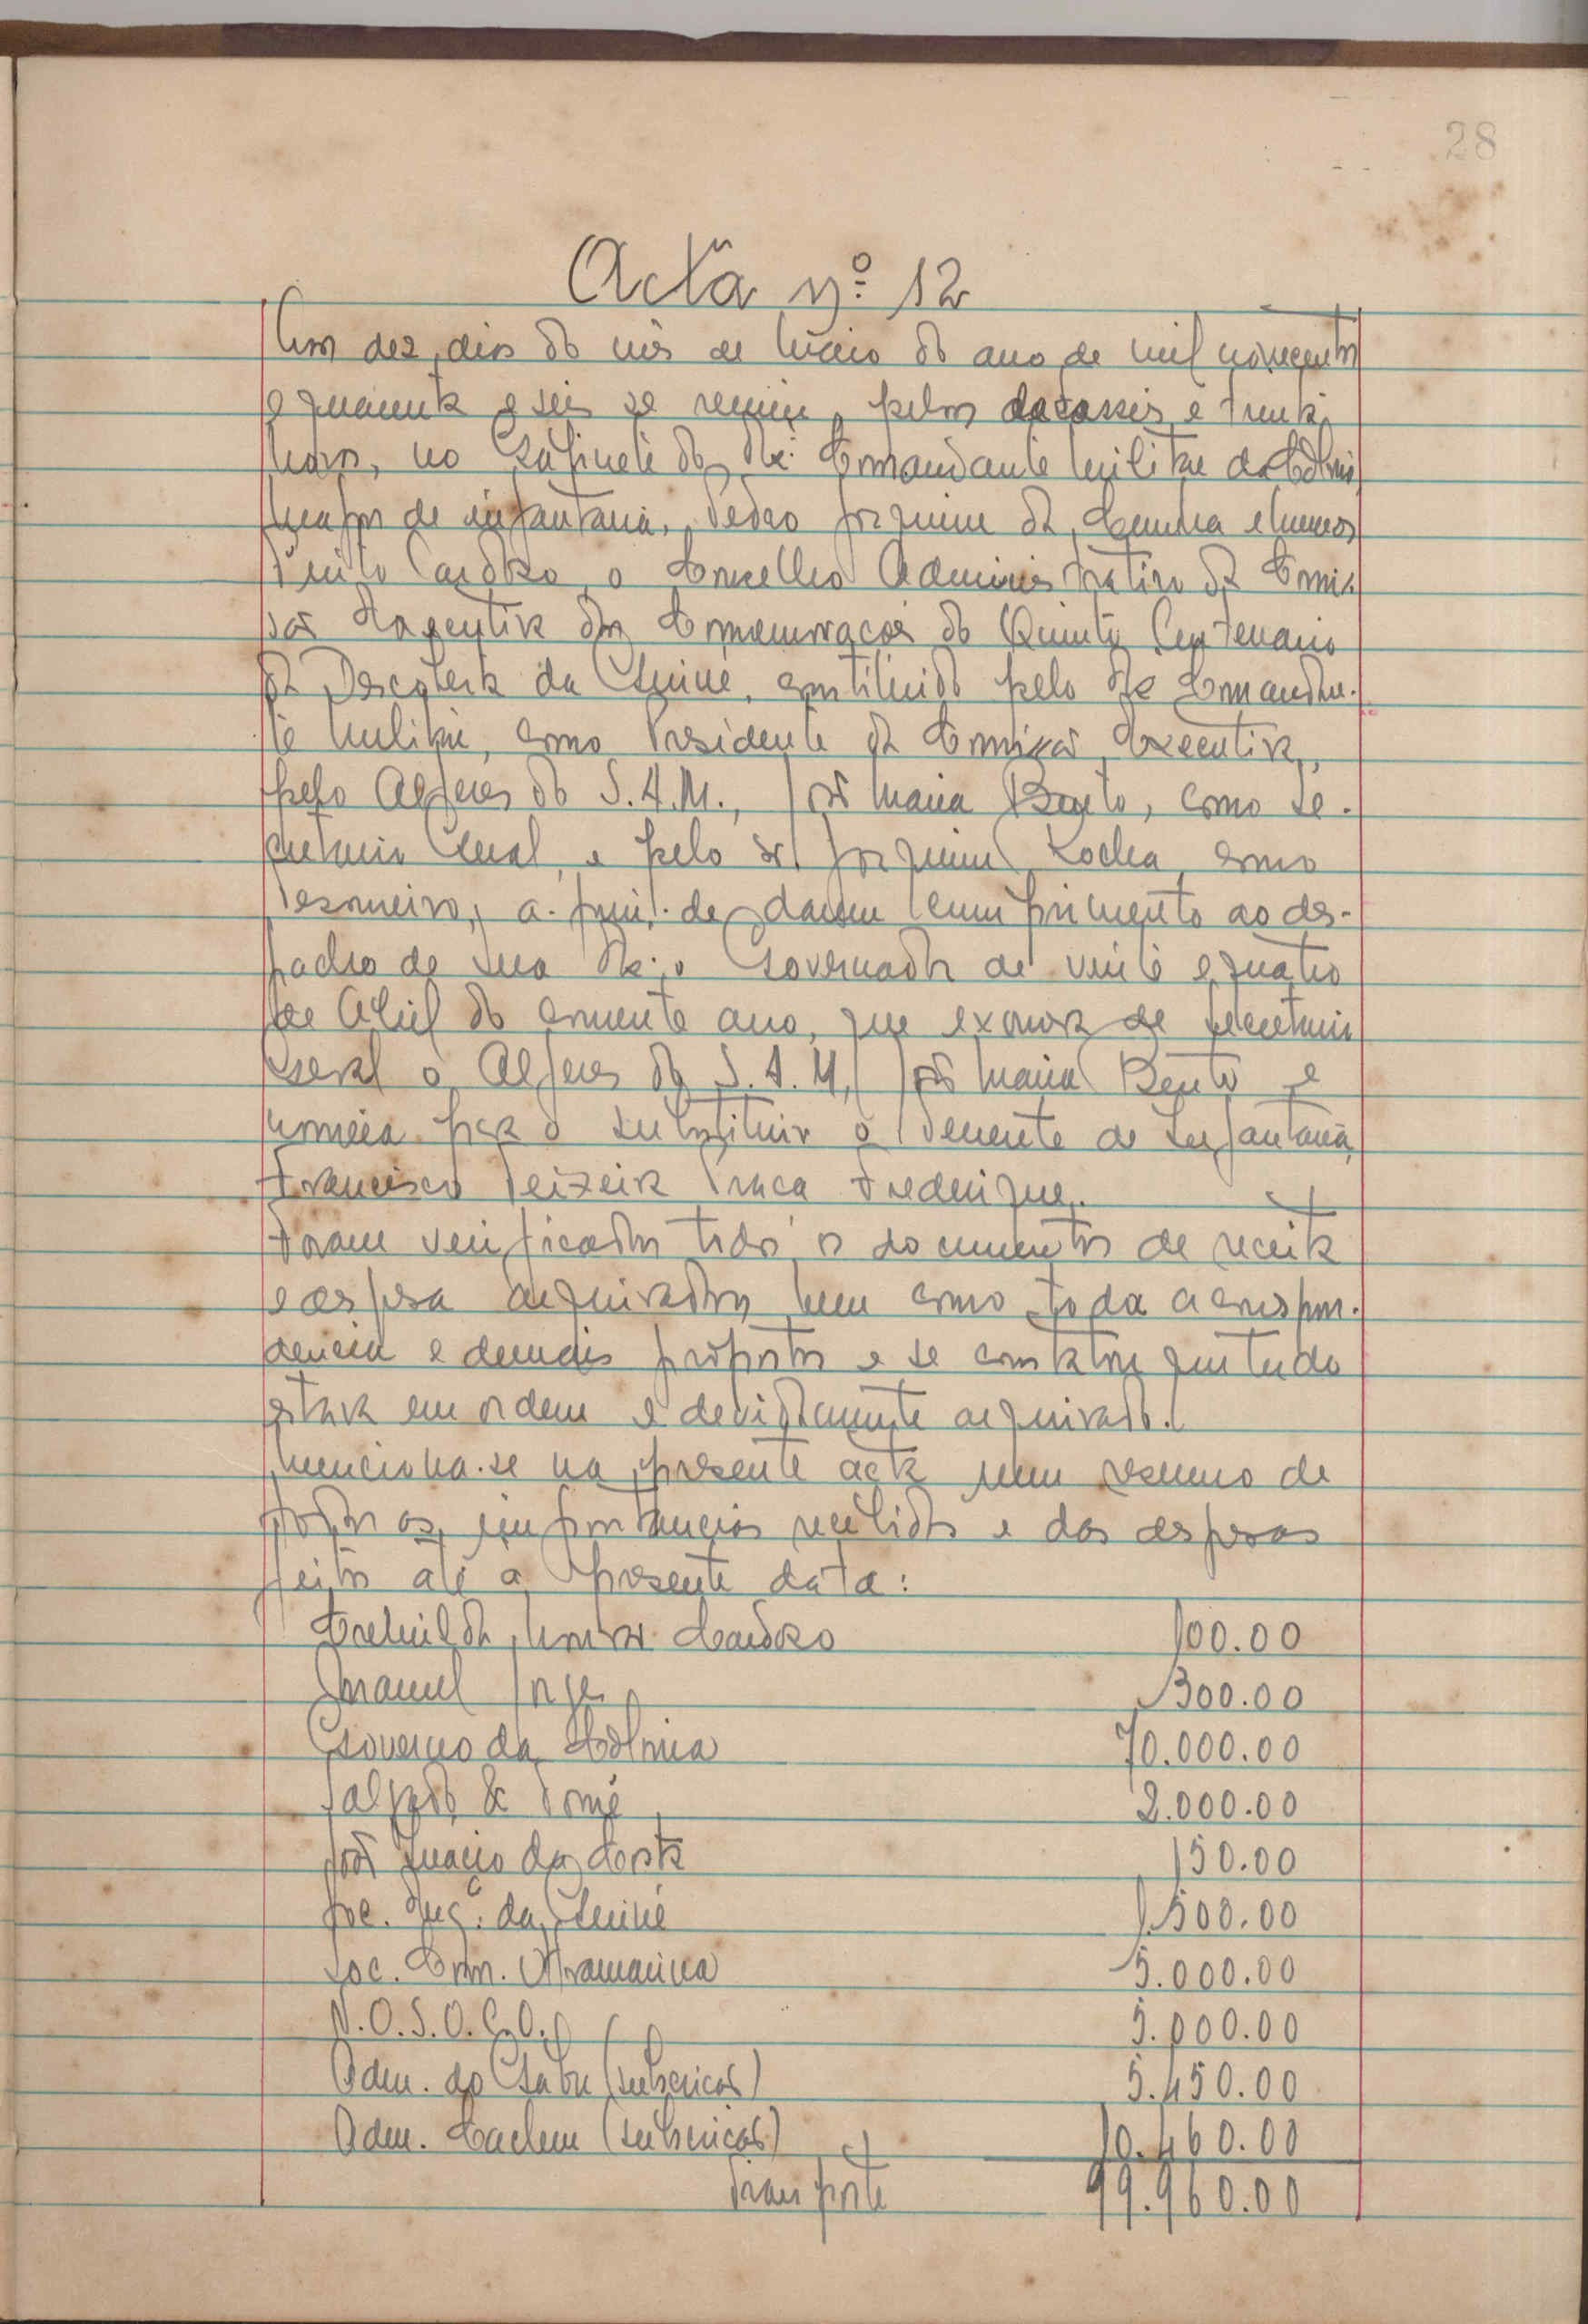 28
Acta n.º 12
Aos dez dias do mês de Maio do ano de mil novecentos
e quarenta e seis se reuniu, pelas dezasseis e trinta
horas, no Gabinete do Ex.º Comandante Militar da Colónia
Major de infantaria, Pedro Joaquim da Cunha e Menezes
Pinto Cardoso, o Conselho Administrativo da Comis
são Executiva das Comemorações do Quinto Centenario
da Descoberta da Guiné, constituido pelo Ex.º Comandan-
te Militar, como Presidente da Comissão Executiva,
pelo Alferes do S.A.M., José Maria Bento, como Se-
cretario Geral, e pelo sr. Joaquim Rocha, como
Tesoureiro, a fim de darem cumprimento ao des-
pacho de Sua Ex.ª o Governador de vinte e quatro
de Abril do corrente ano, que exonera de Secretario
Geral o Alferes do S.A.M., José Maria Bento e
nomeia para o substituir o Tenente de Infantaria,
Francisco Teixeira Frederique.
Foram verificados todos os documentos de receita
e despesa arquivados, bem como toda a correspon-
dencia e demais propostas e se constatou que tudo
estava em ordem e devidamente arquivado.
Menciona-se na presente acta um resumo de
todas as importancias recebidas e das despesas
feitas até a presente data:
Cardoso 100.00
Manuel Jorge 300.00
Governo da Colónia 70.000.00
Salgado & Tomé 2.000.00
José Inacio da Costa 150.00
Soc. da Guiné 1.500.00
Soc. Com. Ultramarina 5.000.00
N.O.S.O.C.O. 5.000.00
Adm. do Gabu (subscrição) 5.450.00
Adm. Cacheu (subscrição) 10.460.00
Transporte 99.960.00